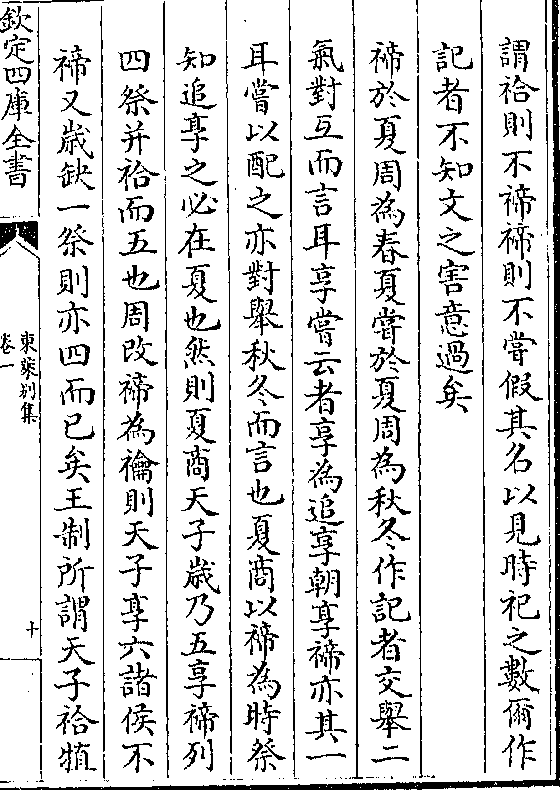 謂祫則不禘禘則不嘗假其名以見時祀之數爾作
記者不知文之害意過矣
禘於夏周為春夏嘗於夏周為秋冬作記者交舉二
氣對互而言耳享嘗云者享為追享朝享禘亦其一
耳嘗以配之亦對舉秋冬而言也夏商以禘為時祭
知追享之必在夏也然則夏商天子歳乃五享禘列
四祭并祫而五也周改禘為禴則天子享六諸侯不
禘又歳缺一祭則亦四而已矣王制所謂天子祫犆
欽定四庫全書
東萊别集
卷一
十